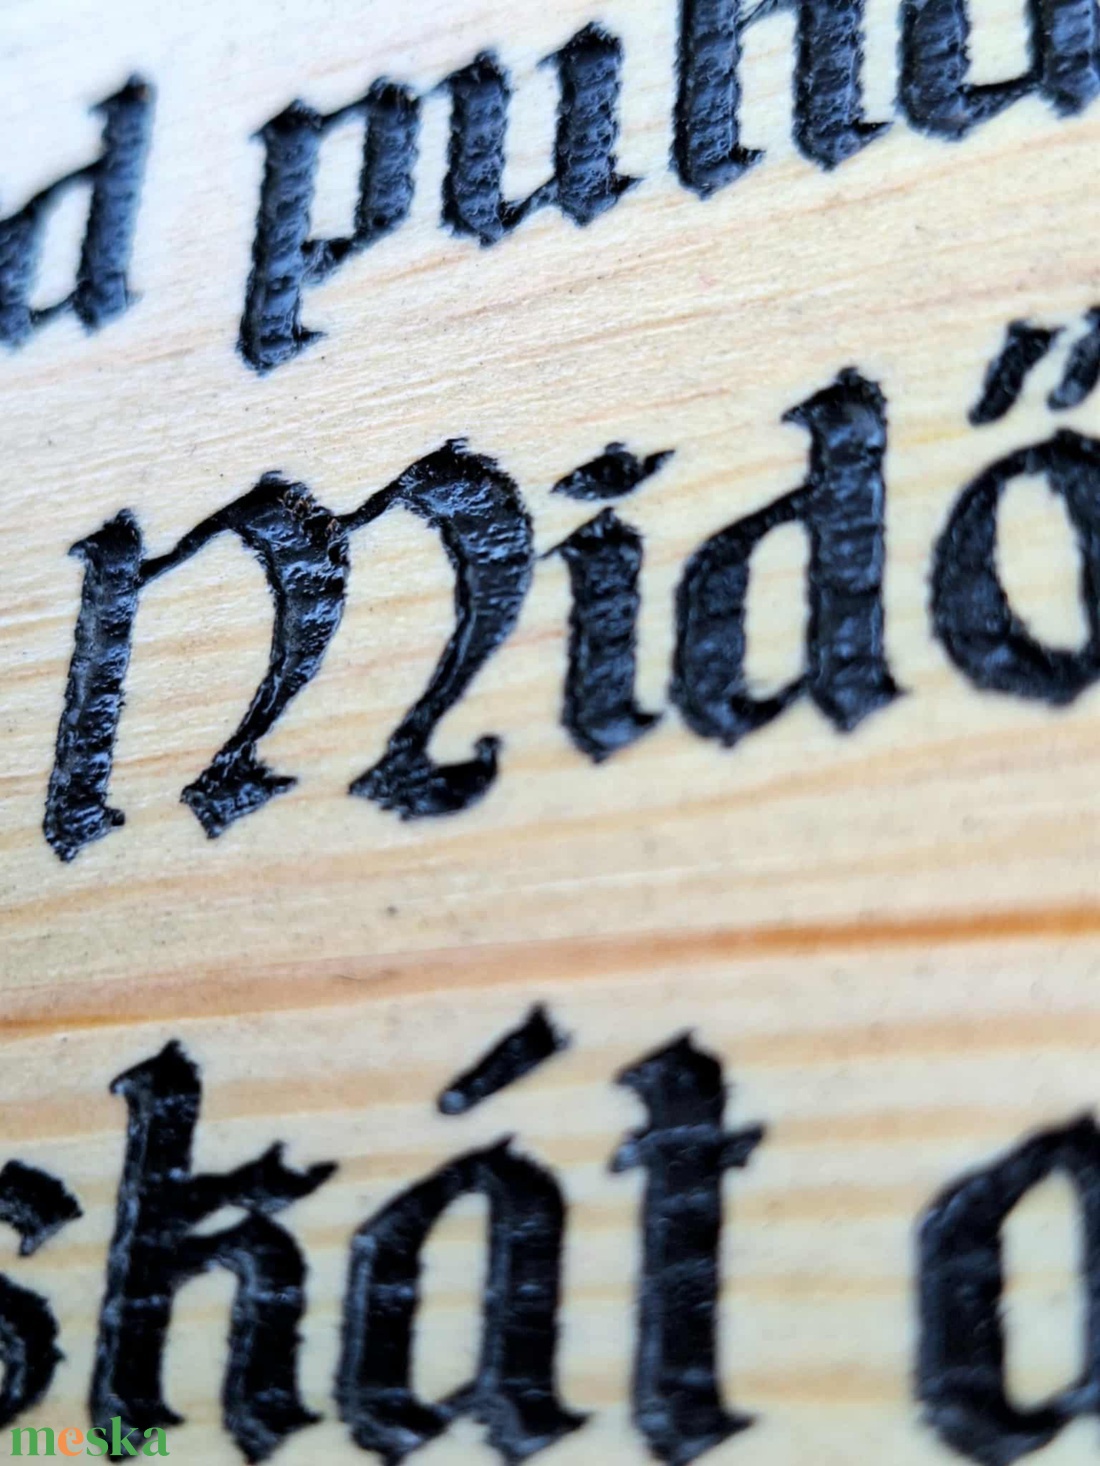 d puha
Midő
skát a
meska